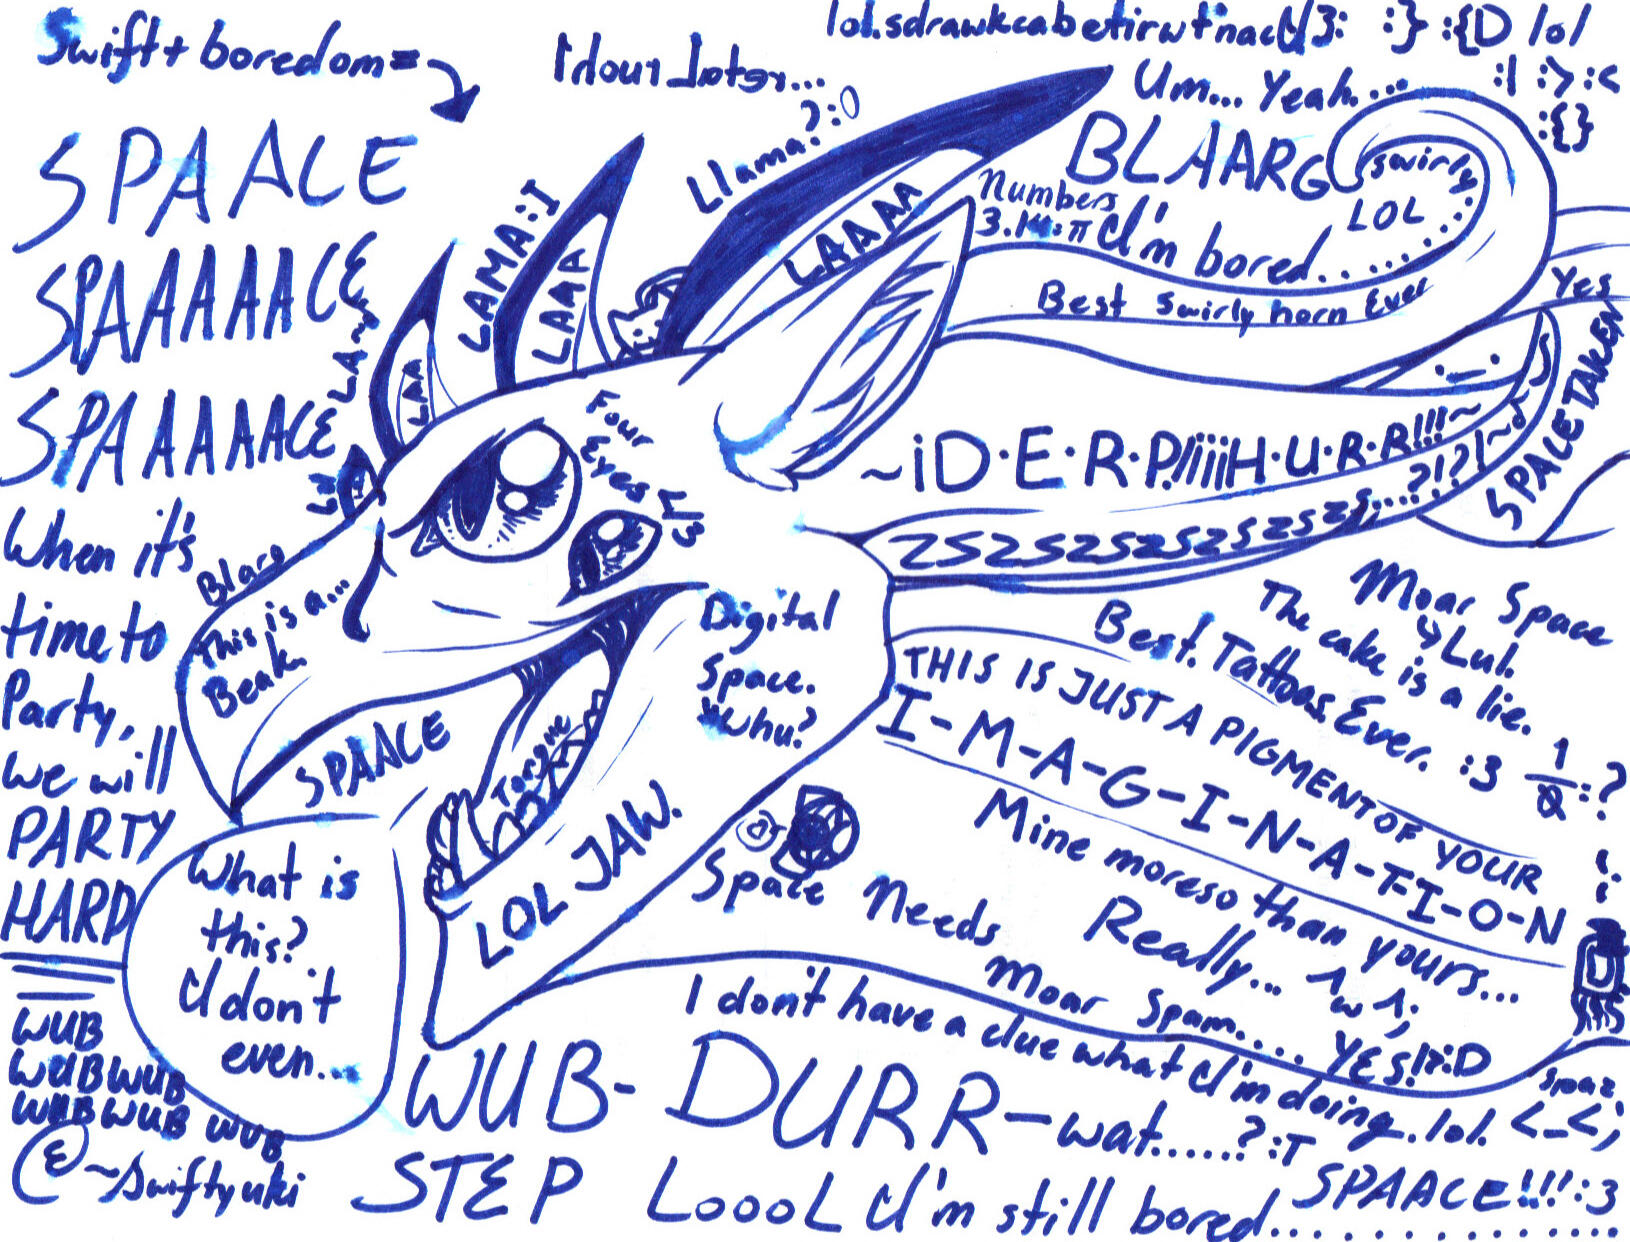 Swift + boredom =
1 hour Later...
lol.sdrawkcabetirwt'nacI 3: :} :{D lol
:| :> :<
:{}
Um... Yeah....
SPAACE
SPAAAAACE
SPAAAAACE
When it's
time to
Party,
we will
PARTY
HARD
WUB
WUBWUB
WUBWUB WUB
@~Swiftyuki
LA~
LAA
LAMA:I
LAAA
Llama?:O
LAAAA
BLAARG
swirly
LOL
Numbers
3.14:π I'm bored.......
Best swirly horn Ever
Yes
SPACE TAKEN
Four
Eyes
~¡D·E·R·P!¡¡¡¡H·U·R·R!!!~
ZSZSZSZSZSZSZSZS,...?!?!~
Blarg
This is a...
Beak.
SPAACE
Tongue
LOL JAW.
Digital
Space.
Whu?
Moar Space
Lul.
The cake is a lie.
Best. Tattoos. Ever. :3
THIS IS JUST A PIGMENT OF YOUR
I-M-A-G-I-N-A-T-I-O-N
Mine moreso than yours...
Really... ^w^;
What is
this?
I don't
even...
Space Needs
Moar Spam.... YES!?:D
I don't have a clue what I'm doing. lol. <_<;
WUB- DURR-wat.....?:T
STEP LoooL I'm still bored..............
SPAACE!!!:3